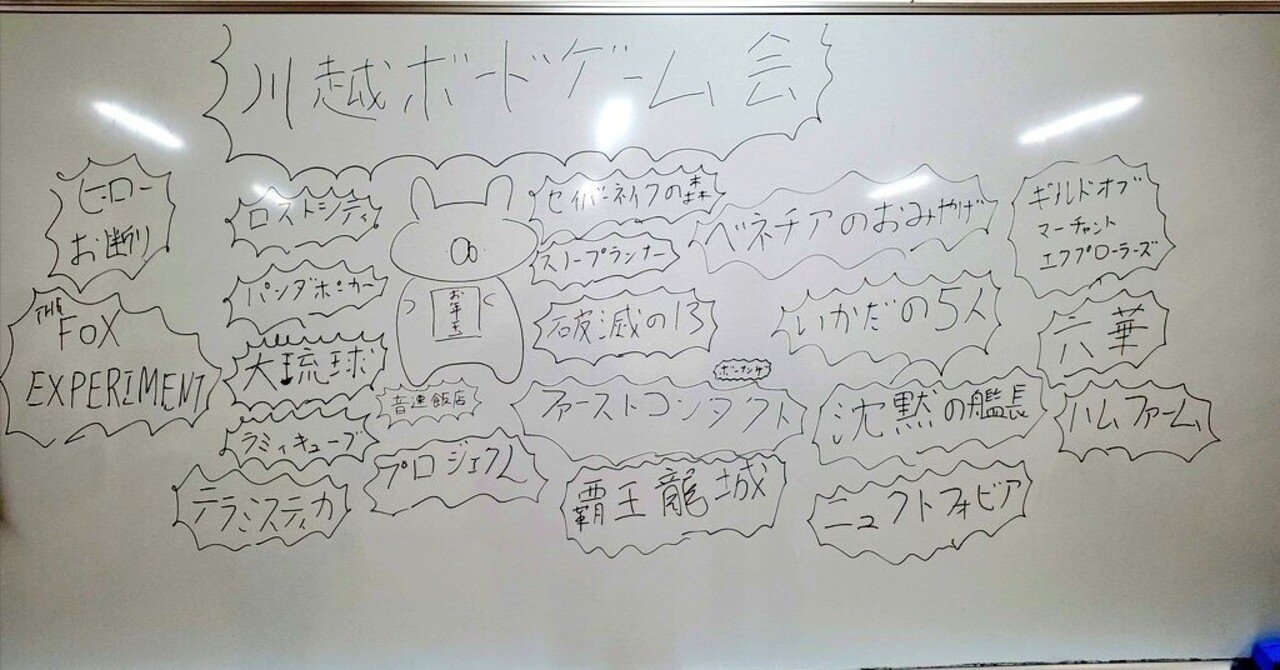 川越ボードゲーム会
ヒーロー
お断り
THE
FOX
EXPERIMENT
ロストシティ
パンダポーカー
大琉球
ラミィキューブ
テラミスティカ
お年玉
音速飯店
プロジェクL
セイバーネイクの森
スノープランナー
破滅の13
ボーナンザ
ファーストコンタクト
覇王龍城
ベネチアのおみやげ
いかだの5人
沈黙の艦長
ニュクトフォビア
ギルドオブ
マーチャント
エクプローラーズ
六華
ハムファーム